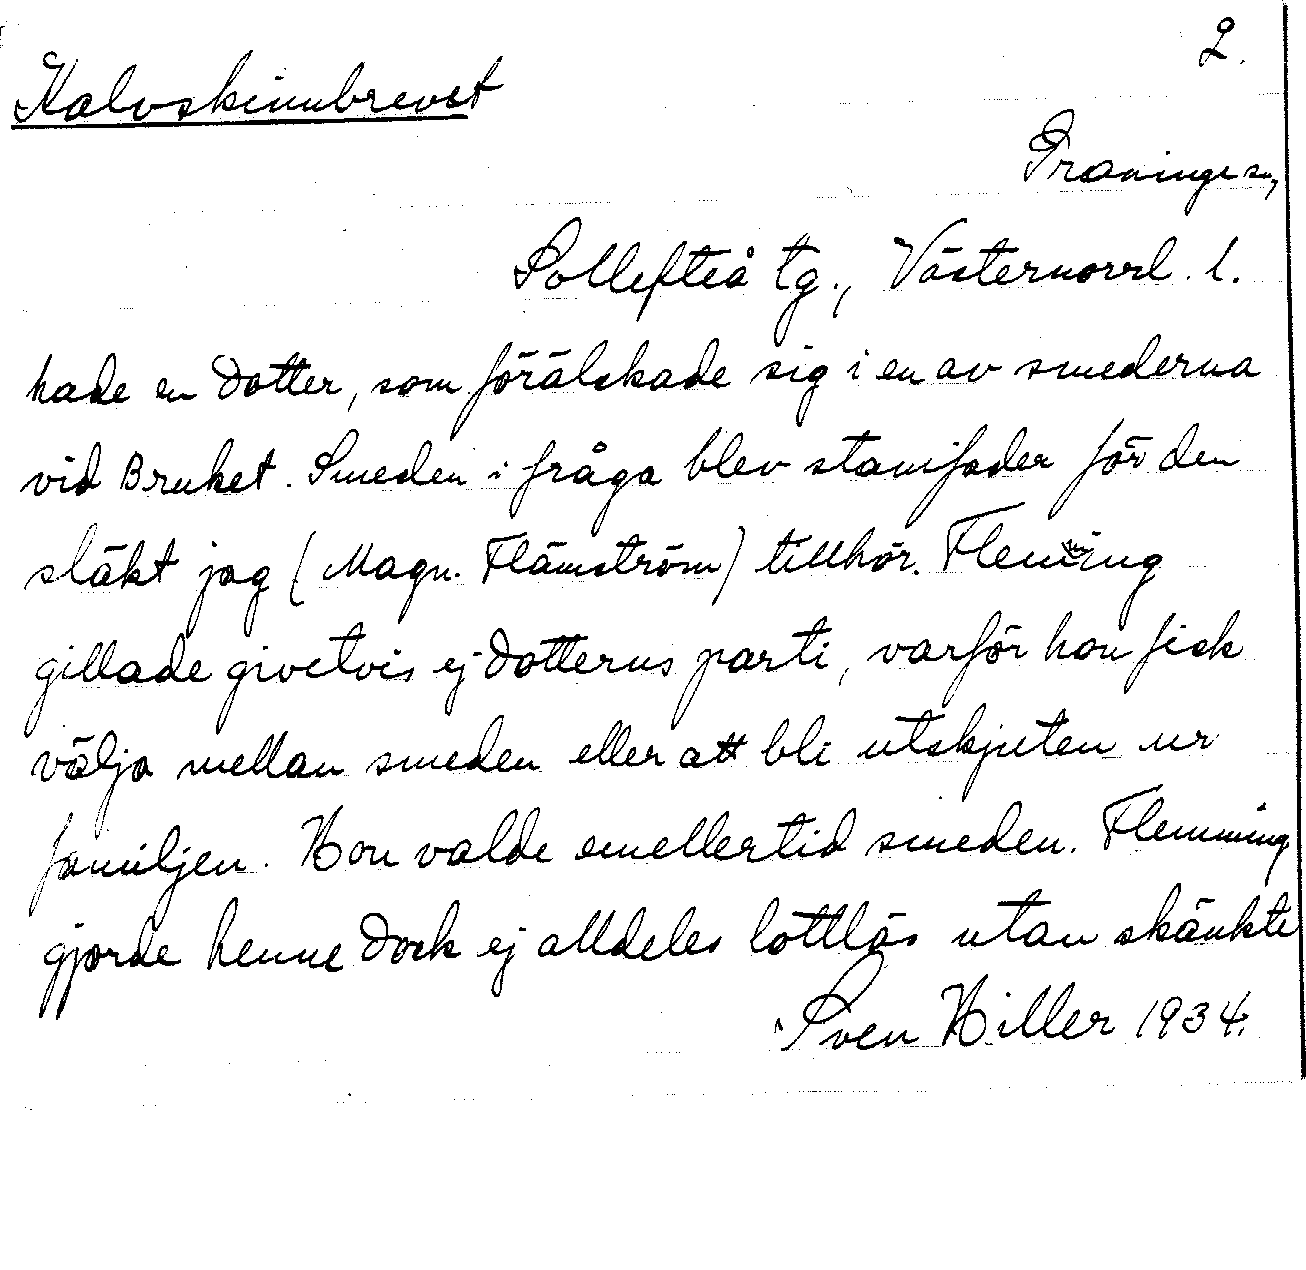 2.
Kalvskinnbrevet
Graninge sn,
Sollefteå tg., Västernorrl. l.
hade en dotter, som förälskade sig i en av smederna
vid Bruket. Smeden i fråga blev stamfader för den
släkt jag (Magn. Flämström) tillhör. Flemming
gillade givetvis ej dotterns parti, varför hon fick
välja mellan smeden eller att bli utskjuten ur
familjen. Hon valde emellertid smeden. Flemming
gjorde henne dock ej alldeles lottlös utan skänkte
Sven Hiller 1934.